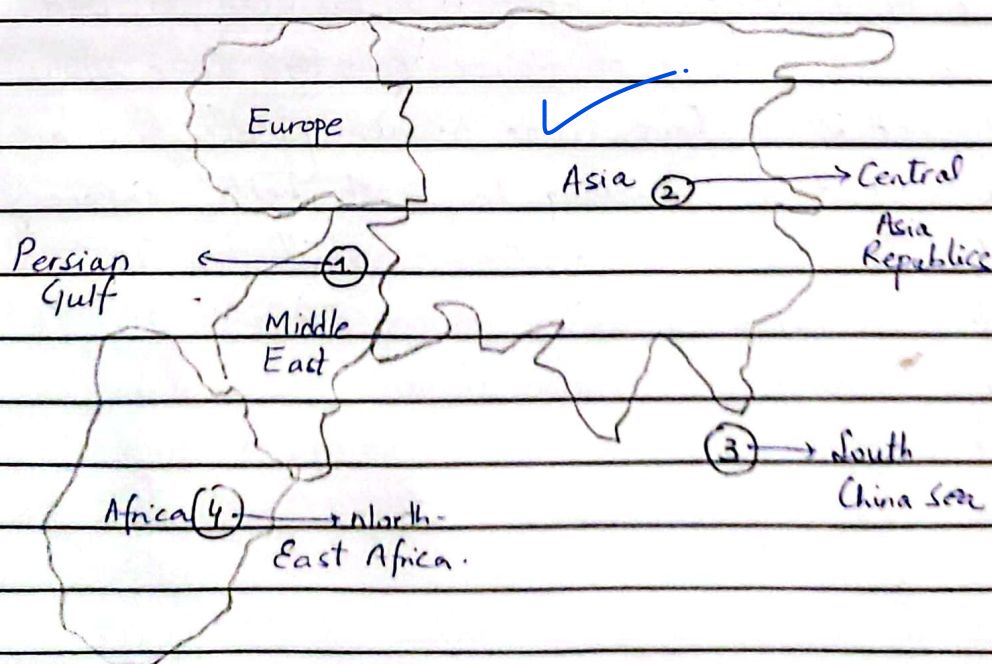 Europe
Asia 2 → Central
Asia
Republics
Persian ← 1
Gulf
Middle
East
3 → South
China Sea
Africa 4 → North-
East Africa.